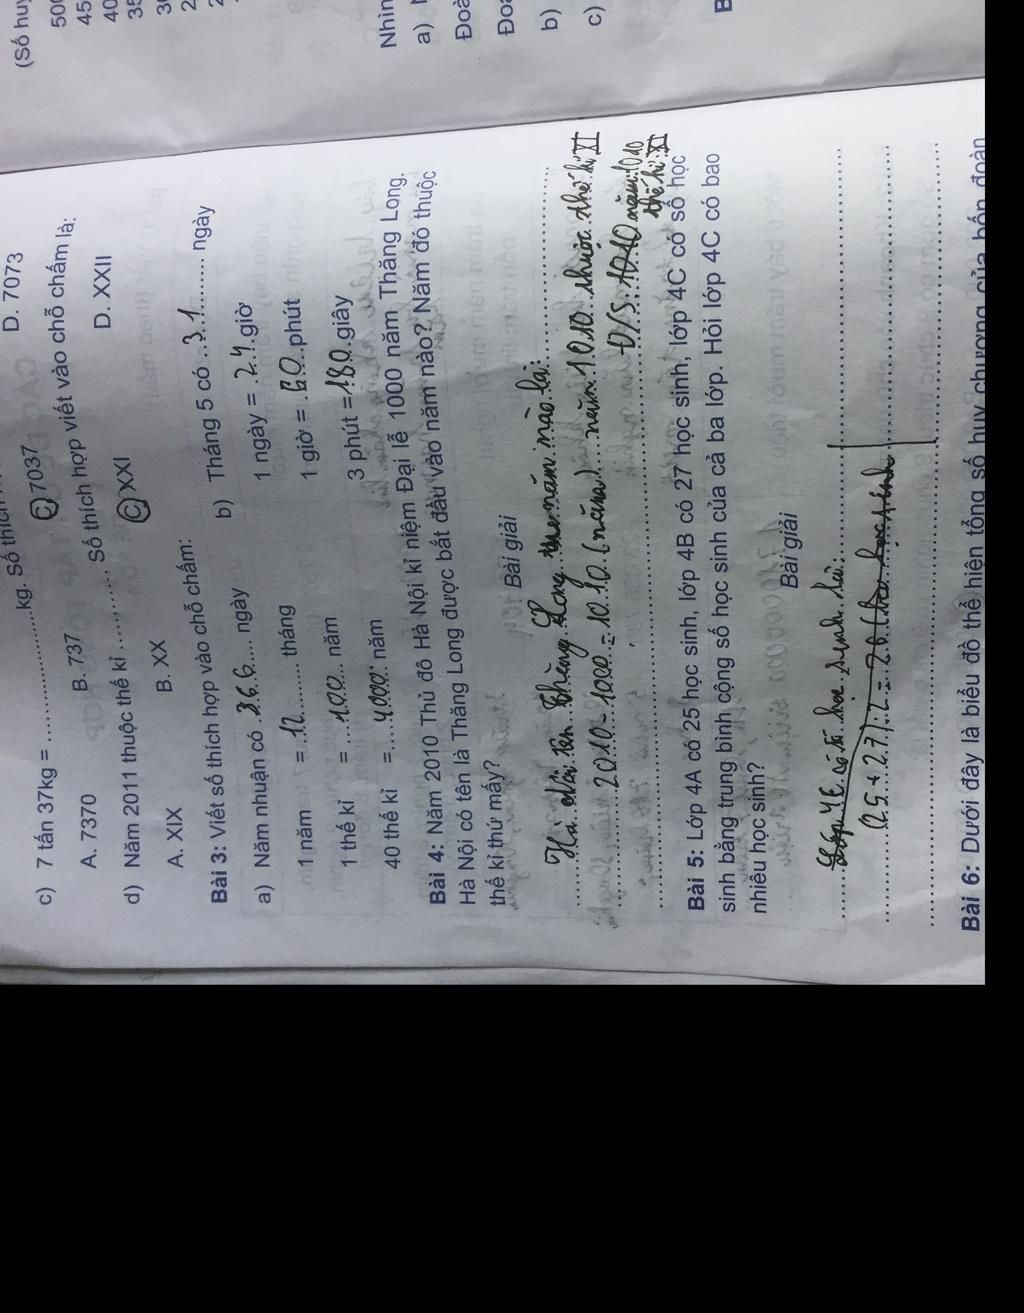 c) 7 tấn 37kg = ..................kg. Số thích
A. 7370 B. 737 C 7037 D. 7073
d) Năm 2011 thuộc thế kỉ ............ Số thích hợp viết vào chỗ chấm là:
A. XIX B. XX C XXI D. XXII
Bài 3: Viết số thích hợp vào chỗ chấm:
a) Năm nhuận có 366 ngày
1 năm = 12 tháng
1 thế kỉ = 100 năm
40 thế kỉ = 4000 năm
b) Tháng 5 có 31 ngày
1 ngày = 24 giờ
1 giờ = 60 phút
3 phút = 180 giây
Bài 4: Năm 2010 Thủ đô Hà Nội kỉ niệm Đại lễ 1000 năm Thăng Long.
Hà Nội có tên là Thăng Long được bắt đầu vào năm nào? Năm đó thuộc
thế kỉ thứ mấy?
Bài giải
Hà Nội tên Thăng Long năm nào là:
2010 - 1000 = 1010 (năm) năm 1010 thuộc thế kỉ XI
Đ/S: 1010 năm: 1010
thế kỉ: XI
Bài 5: Lớp 4A có 25 học sinh, lớp 4B có 27 học sinh, lớp 4C có số học
sinh bằng trung bình cộng số học sinh của cả ba lớp. Hỏi lớp 4C có bao
nhiêu học sinh?
Bài giải
Lớp 4C có số học sinh là:
(25 + 27) : 2 = 26 ( học sinh
Bài 6: Dưới đây là biểu đồ thể hiện tổng số huy chương của bốn đoàn
(Số huy
500
45
40
35
Nhìn
a)
Đoà
Đoạ
b)
c)
B